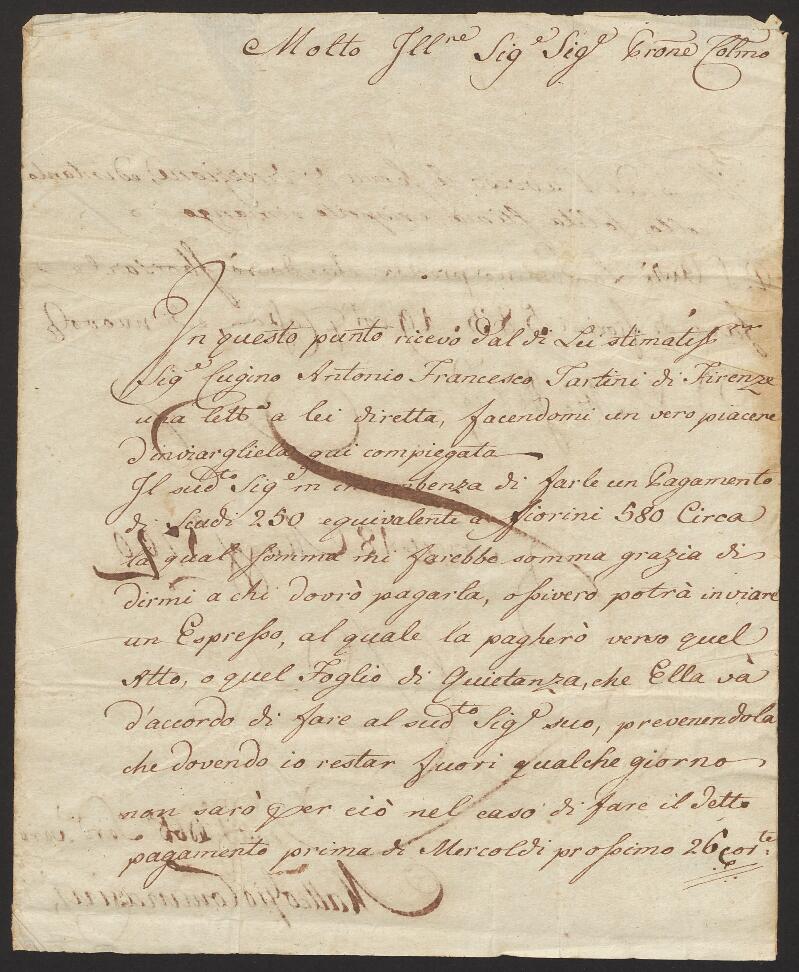 Molto Ill.re Sig.e Sig.e Prone Colmo
In questo punto ricevo dal di Lei stimatiss.mo
Sig.e Cugino Antonio Francesco Tartini di Firenze
una lett.a a lei diretta, facendomi un vero piacere
d'inviargliela qui compiegata
Il sud.to Sig.e m' incombenza di farle un Pagamento
di Scudi 250 equivalenti a fiorini 580 Circa
la qual somma mi farebbe somma grazia di
dirmi a chi dovrò pagarla, ossivero potrà inviare
un Espresso, al quale la pagherò verso quel
Atto, o quel Foglio di Quietanza, che Ella và
d'accordo di fare al sud.to Sig.e suo, prevenendola
che dovendo io restar fuori qualche giorno
non sarò per ciò nel caso di fare il detto
pagamento prima di Mercoldi prossimo 26 cor.te